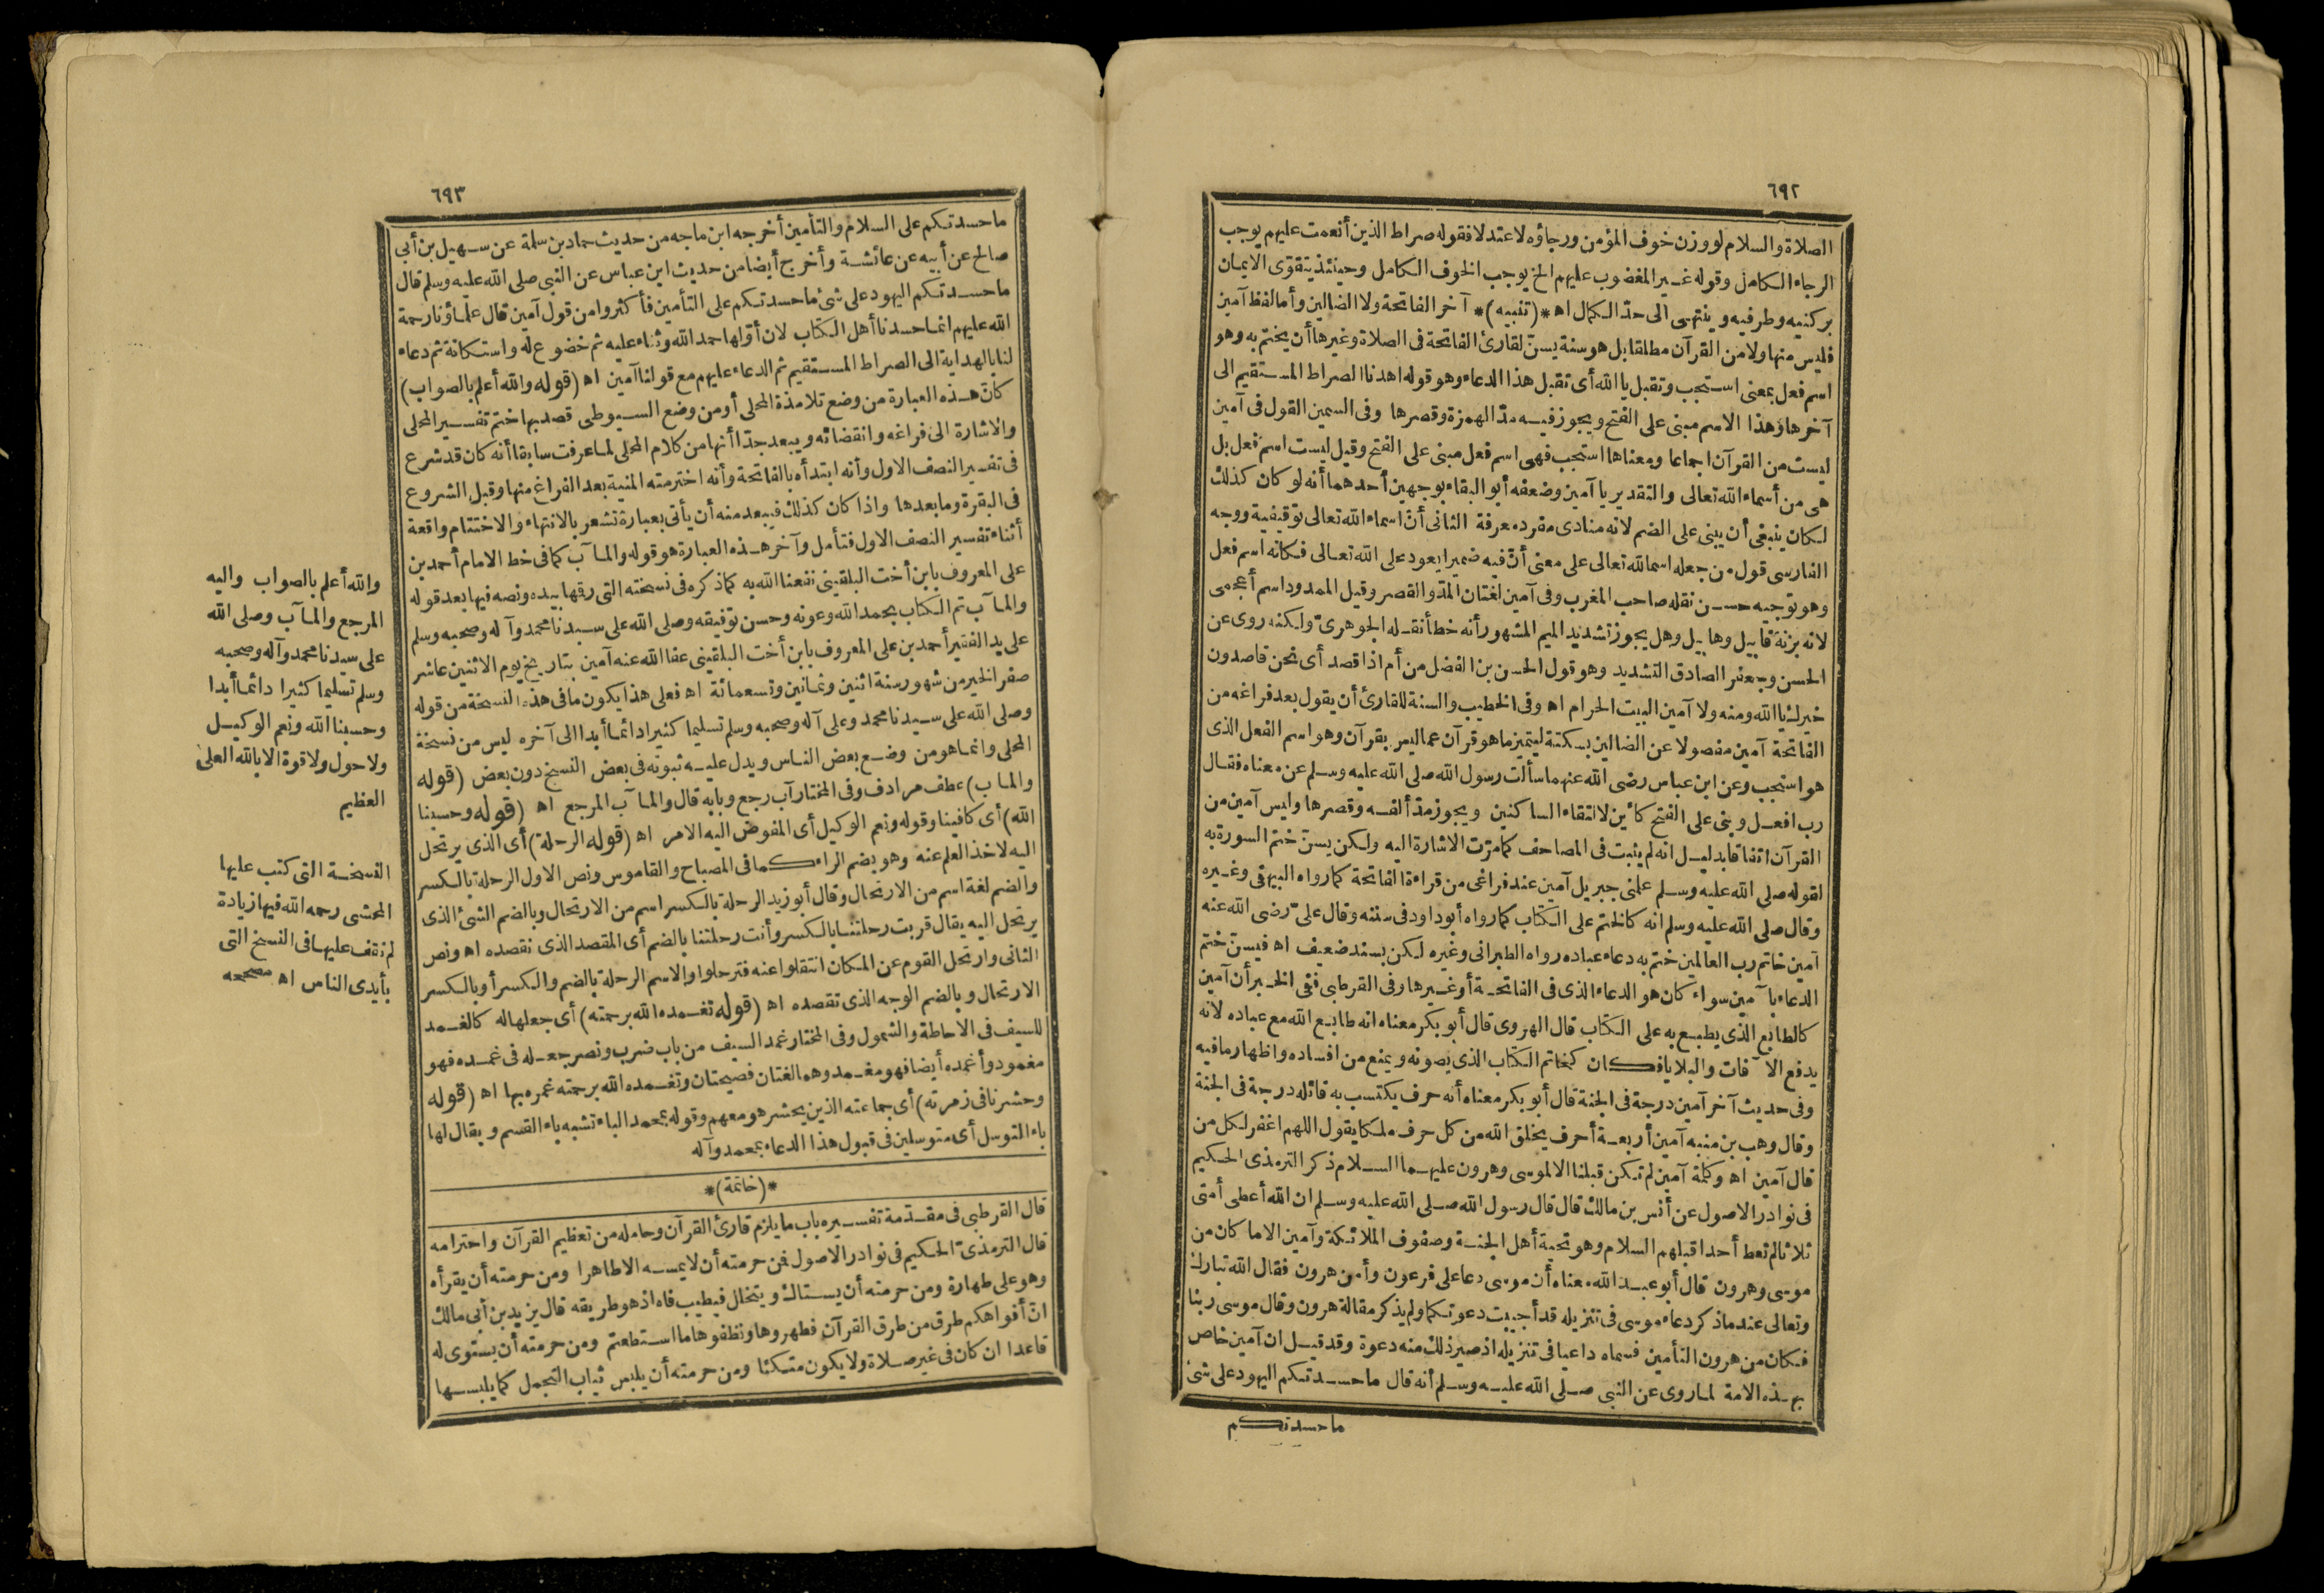 ٦٩٢
الصلاة والسلام لو وزن خوف المؤمن ورجاؤه لاعتدلا فقوله صراط الذين أنعمت عليهم يوجب
الرجاء الكامل وقوله غير المغضوب عليهم الخ يوجب الخوف الكامل وحينئذ يتقوى الايمان
بركنيه وطرفيه وينتهى الى حدّ الكمال اه *(تنبيه)* آخر الفاتحة ولا الضالين وأما لفظ آمين
فليس منها ولا من القرآن مطلقا بل هو سنة يسنّ لقارئ الفاتحة فى الصلاة وغيرها أن يختم به وهو
اسم فعل بمعنى استجب وتقبل يا الله أى تقبل هذا الدعاء وهو قوله اهدنا الصراط المستقيم الى
آخرها وهذا الاسم مبنى على الفتح ويجوز فيه مدّ الهمزة وقصرها وفى السمين القول فى آمين
ليست من القرآن اجماعا ومعناها استجب فهى اسم فعل مبنى على الفتح وقيل ليست اسم فعل بل
هى من أسماء الله تعالى والتقدير يا آمين وضعفه أبو البقاء بوجهين أحدهما أنه لو كان كذلك
لكان ينبغى أن يبنى على الضم لانه منادى مفرد معرفة الثانى أنّ اسماء الله تعالى توقيفية ووجه
الفارسى قول من جعله اسما لله تعالى على معنى أنّ فيه ضميرا يعود على الله تعالى فكأنه اسم فعل
وهو توجيه حسن نقله صاحب المغرب وفى آمين لغتان المدّ والقصر وقيل الممدود اسم أعجمى
لانه بزنة قابيل وهابيل وهل يجوز تشديد الميم المشهور أنه خطأ نقله الجوهرىّ ولكنه روى عن
الحسن وجعفر الصادق التشديد وهو قول الحسن بن الفضل من أم اذا قصد أى نحن قاصدون
خيرك يا الله ومنه ولا آمين البيت الحرام اه وفى الخطيب والسنة للقارئ أن يقول بعد فراغه من
الفاتحة آمين مفصولا عن الضالين بسكتة ليتميز ما هو قرآن عما ليس بقرآن وهو اسم الفعل الذى
هو استجب وعن ابن عباس رضى الله عنهما سألت رسول الله صلى الله عليه وسلم عن معناه فقال
رب افعل وبنى على الفتح كأين لالتقاء الساكنين ويجوز مدّ ألفه وقصرها وليس آمين من
القرآن اتفاقا بدليل انه لم يثبت فى المصاحف كما مرّت الاشارة اليه ولكن يسنّ ختم السورة به
لقوله صلى الله عليه وسلم علمنى جبريل آمين عند فراغى من قراءة الفاتحة كما رواه البيهقى وغيره
وقال صلى الله عليه وسلم انه كالختم على الكتاب كما رواه أبو داود فى سننه وقال علىّ رضى الله عنه
آمين خاتم رب العالمين ختم به دعاء عباده رواه الطبرانى وغيره لكن بسند ضعيف اه فيسنّ ختم
الدعاء بآمين سواء كان هو الدعاء الذى فى الفاتحة أو غيرها وفى القرطبى ففى الخبر أن آمين
كالطابع الذى يطبع به على الكتاب قال الهروى قال أبو بكر معناه انه طابع الله مع عباده لانه
يدفع الآفات والبلايا فكان كخاتم الكتاب الذى يصونه ويمنع من افساده واظهار ما فيه
وفى حديث آخر آمين درجة فى الجنة قال أبو بكر معناه أنه حرف يكتسب به قائله درجة فى الجنة
وقال وهب بن منبه آمين أربعة أحرف يخلق الله من كل حرف ملكا يقول اللهم اغفر لكل من
قال آمين اه وكلمة آمين لم تكن قبلنا الا لموسى وهرون عليهما السلام ذكر الترمذى الحكيم
فى نوادر الاصول عن أنس بن مالك قال قال رسول الله صلى الله عليه وسلم ان الله أعطى أمتى
ثلاثا لم تعط أحدا قبلهم السلام وهو تحية أهل الجنة وصفوف الملائكة وآمين الا ما كان من
موسى وهرون قال أبو عبد الله معناه أن موسى دعا على فرعون وأمن هرون فقال الله تبارك
وتعالى عند ما ذكر دعاء موسى فى تنزيله قد أجيبت دعوتكما ولم يذكر مقالة هرون وقال موسى ربنا
فكان من هرون التأمين فسماه داعيا فى تنزيله اذ صير ذلك منه دعوة وقد قيل ان آمين خاص
بهذه الامة لما روى عن النبى صلى الله عليه وسلم أنه قال ما حسدتكم اليهود على شئ
ما حسدتكم
٦٩٣
ما حسدتكم على السلام والتأمين أخرجه ابن ماجه من حديث حماد بن سلمة عن سهيل بن أبى
صالح عن أبيه عن عائشة وأخرج أيضا من حديث ابن عباس عن النبى صلى الله عليه وسلم قال
ما حسدتكم اليهود على شئ ما حسدتكم على التأمين فأكثروا من قول آمين قال علماؤنا رحمة
الله عليهم انما حسدنا أهل الكتاب لان أوّلها حمد الله وثناء عليه ثم خضوع له واستكانة ثم دعاء
لنا بالهداية الى الصراط المستقيم ثم الدعاء عليهم مع قولنا آمين اه (قوله والله أعلم بالصواب)
كانّ هذه العبارة من وضع تلامذة المحلى أو من وضع السيوطى قصد بها ختم تفسير المحلى
والاشارة الى فراغه وانقضائه ويبعد جدّا أنها من كلام المحلى لما عرفت سابقا أنه كان قد شرع
فى تفسير النصف الاول وأنه ابتدأه بالفاتحة وأنه اخترمته المنية بعد الفراغ منها وقبل الشروع
فى البقرة وما بعدها واذا كان كذلك فيبعد منه أن يأتى بعبارة تشعر بالانتهاء والاختتام واقعة
أثناء تفسير النصف الاول فتأمل وآخر هذه العبارة هو قوله والمآب كما فى خط الامام أحمد بن
على المعروف بابن أخت البلقينى نفعنا الله به كما ذكره فى نسخته التى رقها بيده ونصه فيها بعد قوله
والمآب تم الكتاب بحمد الله وعونه وحسن توفيقه وصلى الله على سيدنا محمد وآله وصحبه وسلم
على يد الفقير أحمد بن على المعروف بابن أخت البلقينى عفا الله عنه آمين بتاريخ يوم الاثنين عاشر
صفر الخير من شهور سنة اثنين وثمانين وتسعمائة اه فعلى هذا يكون ما فى هذه النسخة من قوله
وصلى الله على سيدنا محمد وعلى آله وصحبه وسلم تسليما كثيرا دائما أبدا الى آخره ليس من نسخة
المحلى وانما هو من وضع بعض الناس ويدل عليه ثبوته فى بعض النسخ دون بعض (قوله
والمآب) عطف مرادف وفى المختار آب رجع وبابه قال والمآب المرجع اه (قوله وحسبنا
الله) أى كافينا وقوله ونعم الوكيل أى المفوض اليه الامر اه (قوله الرحلة) أى الذى يرتحل
اليه لاخذ العلم عنه وهو بضم الراء كما فى المصباح والقاموس ونص الاول الرحلة بالكسر
والضم لغة اسم من الارتحال وقال أبو زيد الرحلة بالكسر اسم من الارتحال وبالضم الشئ الذى
يرتحل اليه يقال قربت رحلتنا بالكسر وأنت رحلتنا بالضم أى المقصد الذى نقصده اه ونص
الثانى وارتحل القوم عن المكان انتقلوا عنه فترحلوا والاسم الرحلة بالضم والكسر أو بالكسر
الارتحال وبالضم الوجه الذى تقصده اه (قوله تغمده الله برحمته) أى جعلها له كالغمد
للسيف فى الاحاطة والشمول وفى المختار غمد السيف من باب ضرب ونصر جعله فى غمده فهو
مغمود وأغمده أيضا فهو مغمد وهما لغتان فصيحتان وتغمده الله برحمته غمره بها اه (قوله
وحشرنا فى زمرته) أى جماعته الذين يحشر هو معهم وقوله بمحمد الباء تشبه باء القسم ويقال لها
باء التوسل أى متوسلين فى قبول هذا الدعاء بمحمد وآله
*(خاتمة)*
قال القرطبى فى مقدّمة تفسيره باب ما يلزم قارئ القرآن وحامله من تعظيم القرآن واحترامه
قال الترمذىّ الحكيم فى نوادر الاصول فمن حرمته أن لا يمسه الا طاهرا ومن حرمته أن يقرأه
وهو على طهارة ومن حرمته أن يستاك ويتخلل فيطيب فاه اذ هو طريقه قال يزيد بن أبى مالك
انّ أفواهكم طرق من طرق القرآن فطهروها ونظفوها ما استطعتم ومن حرمته أن يستوى له
قاعدا ان كان فى غير صلاة ولا يكون متكئا ومن حرمته أن يلبس ثياب التجمل كما يلبسها
والله أعلم بالصواب واليه
المرجع والمآب وصلى الله
على سيدنا محمد وآله وصحبه
وسلم تسليما كثيرا دائما أبدا
وحسبنا الله ونعم الوكيل
ولا حول ولا قوة الا بالله العلى
العظيم
النسخة التى كتب عليها
المحشى رحمه الله فيها زيادة
لم نقف عليها فى النسخ التى
بأيدى الناس اه مصححه